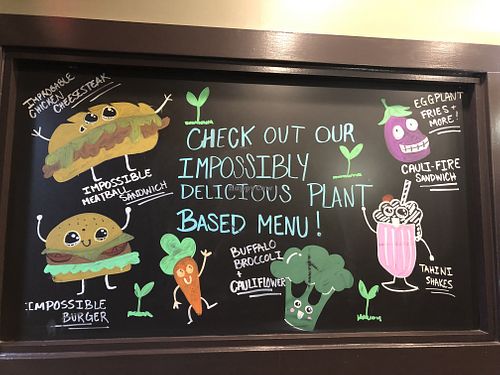 IMPROBABLE
CHICKEN
CHEESESTEAK
IMPOSSIBLE
MEATBALL
SANDWICH
IMPOSSIBLE
BURGER
CHECK OUT OUR
IMPOSSIBLY
DELICIOUS PLANT
BASED MENU!
BUFFALO
BROCCOLI
+
CAULIFLOWER
EGGPLANT
FRIES +
MORE!
CAULI-FIRE
SANDWICH
TAHINI
SHAKES